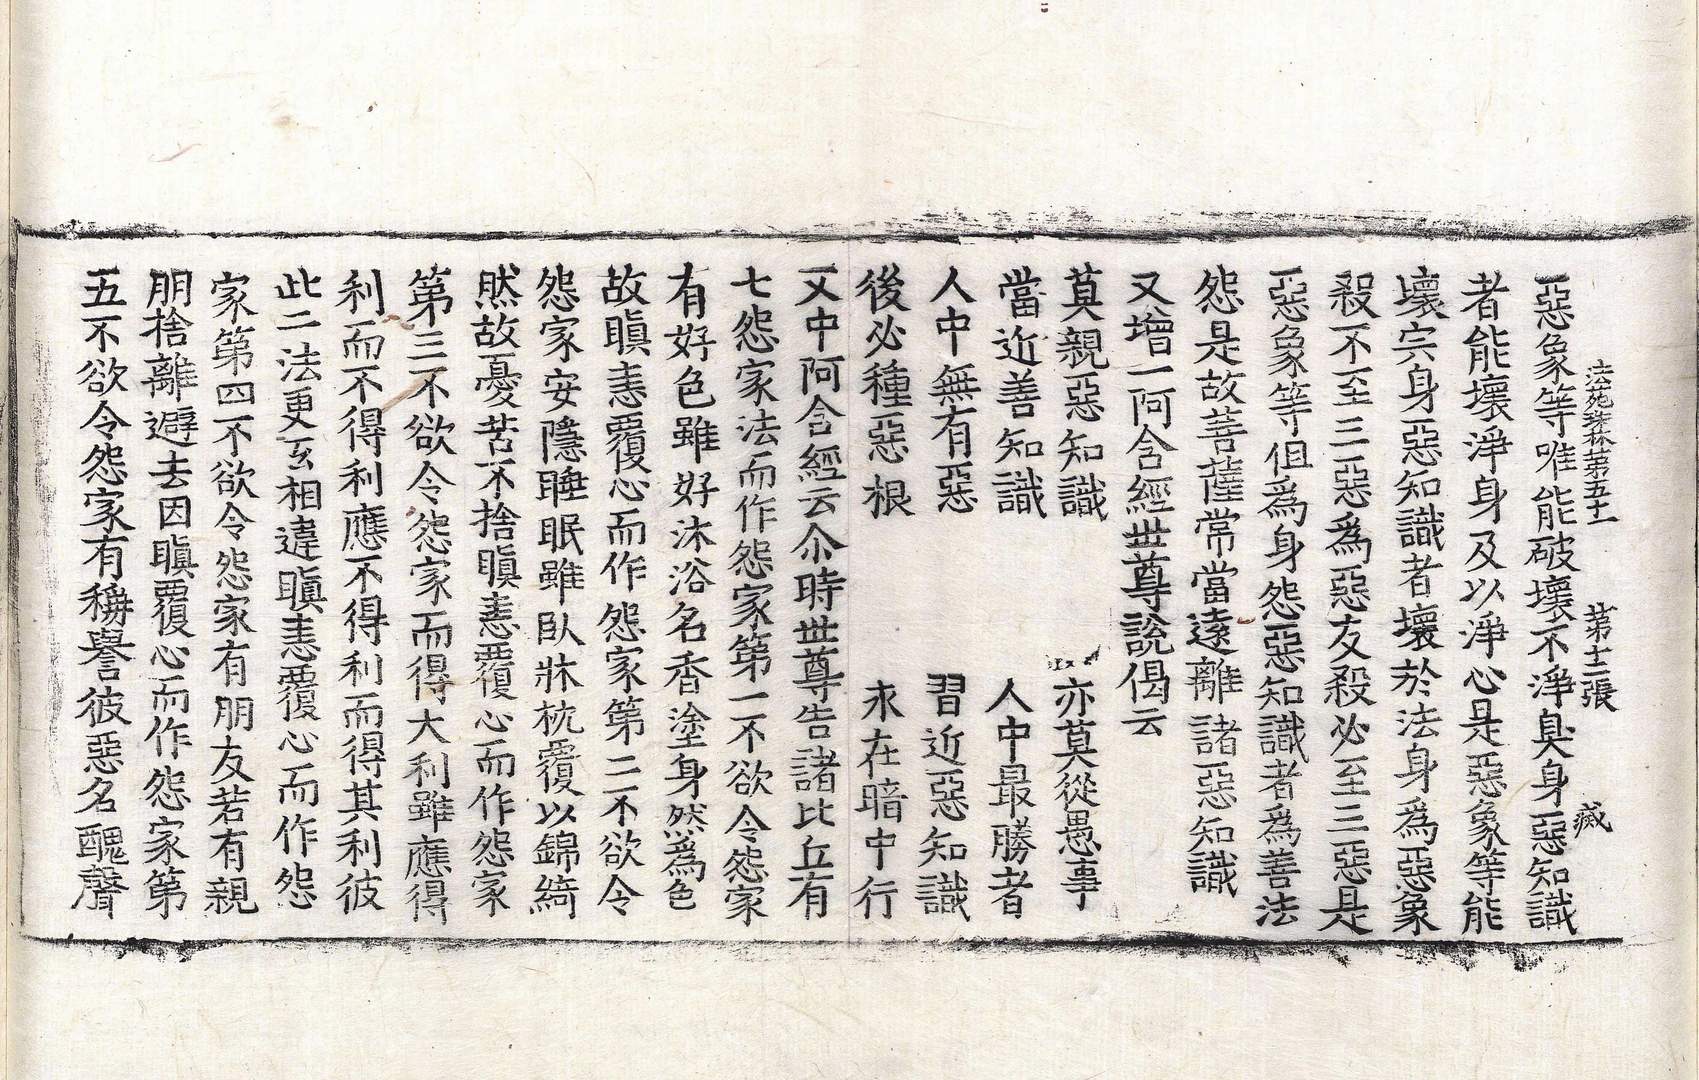 法苑珠林第五十一 第十二張 㦿
惡象等唯能破壞不淨臭身惡知識
者能壞淨身及以淨心是惡象等能
壞宍身惡知識者壞於法身爲惡象
殺不至三惡爲惡友殺必至三惡是
惡象等但爲身怨惡知識者爲善法
怨是故菩薩常當遠離諸惡知識
又增一阿含經世尊說偈云
莫親惡知識 亦莫從愚事
當近善知識 人中最勝者
人中無有惡 習近惡知識
後必種惡根 永在暗中行
又中阿含經云尒時世尊告諸比丘有
七怨家法而作怨家第一不欲令怨家
有好色雖好沐浴名香塗身然爲色
故瞋恚覆心而作怨家第二不欲令
怨家安隱睡眠雖臥牀枕覆以錦綺
然故憂苦不捨瞋恚覆心而作怨家
第三不欲令怨家而得大利雖應得
利而不得利應不得利而得其利彼
此二法更互相違瞋恚覆心而作怨
家第四不欲令怨家有朋友若有親
朋捨離避去因瞋覆心而作怨家第
五不欲令怨家有稱譽彼惡名醜聲